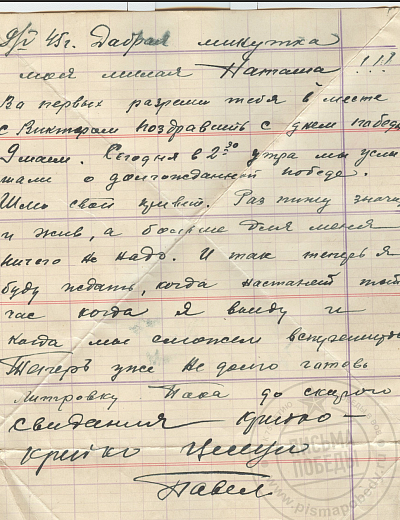 9/V 45 г. Дабрая минутка
моя милая Наташа!!!
Ва первых разреши тебя в месте
с Виктарам поздравить с днем победы
9 маем. Сегодня в 2 30 утра мы услы
шали о долгожданной победе.
Шлю свой привет. Раз пишу значит
и жив, а больше для меня
ничего не надо. И так теперь я
буду ждать, когда настанет тот
час когда я выйду и
когда мы сможем встретиться
Теперъ уже не долго гатовь
литровку Пока до скарого
свидания крипко-
крипко Целую
Павел
ПИСЬМА
ПОБЕДЫ
www.pismapobedy.ru